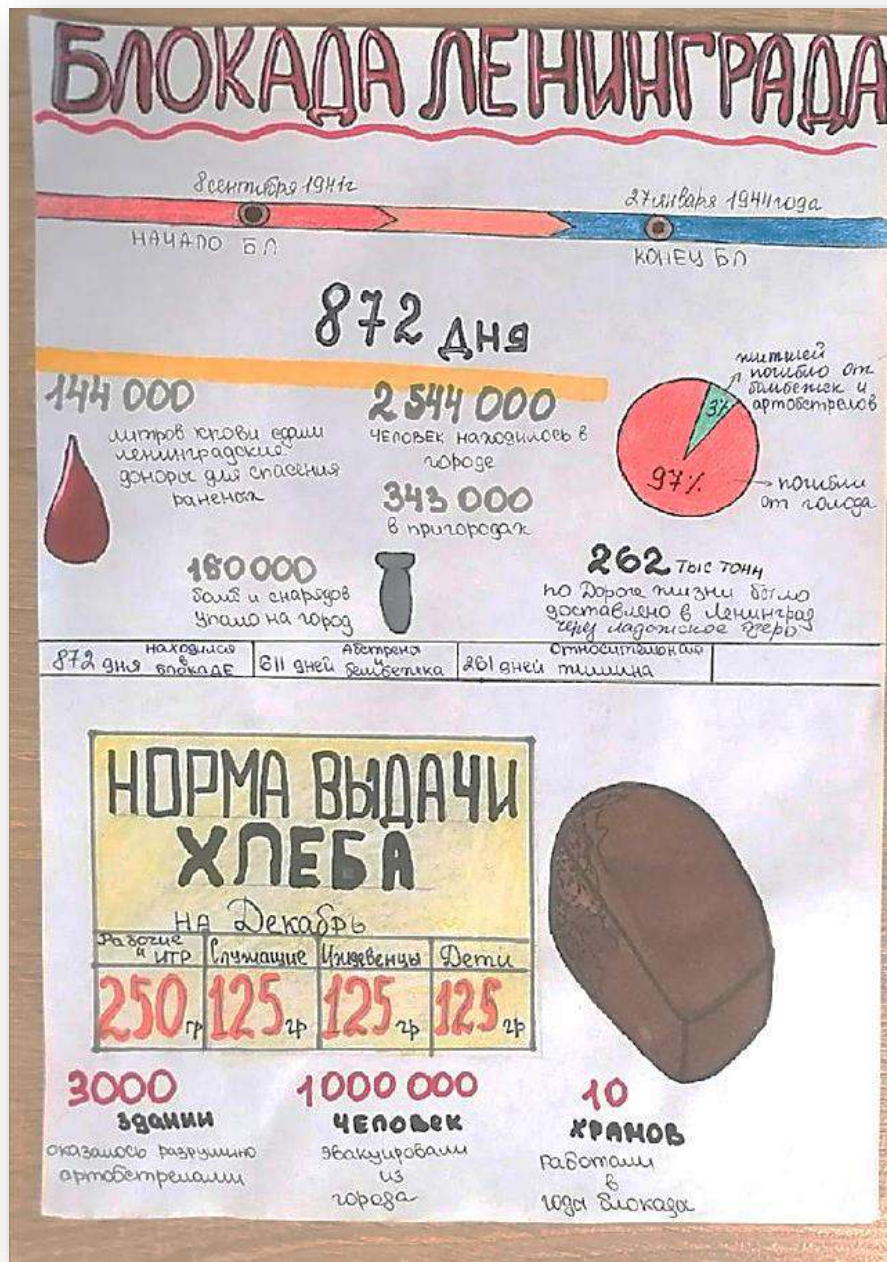 БЛОКАДА ЛЕНИНГРАДА
8 сентября 1941г
27 января 1944 года
НАЧАЛО БЛ
КОНЕЦ БЛ
872 ДНЯ
144 000
литров крови сдали
ленинградские
доноры для спасения
раненых
2 544 000
ЧЕЛОВЕК НАХОДИЛОСЬ В
городе
343 000
в пригородах
жителей
погибло от
бомбежек и
артобстрелов
3%
97%
погибли
от голода
150 000
бомб и снарядов
упало на город
262 ТЫС ТОНН
по Дороге жизни было
доставлено в Ленинград
через ладожское озеро
872 дня находился в БЛОКАДЕ
611 дней Абстрела и бембежка
261 дней Относительная тишина
НОРМА ВЫДАЧИ
ХЛЕБА
НА Декабрь
Рабочие и ИТР
Служащие
Иждевенцы
Дети
250 гр
125 гр
125 гр
125 гр
3000
зданий
оказалось разрушино
артобстрелами
1000 000
ЧЕЛОВЕК
эвакуировали
из
города
10
ХРАМОВ
работали
в
годы блокады